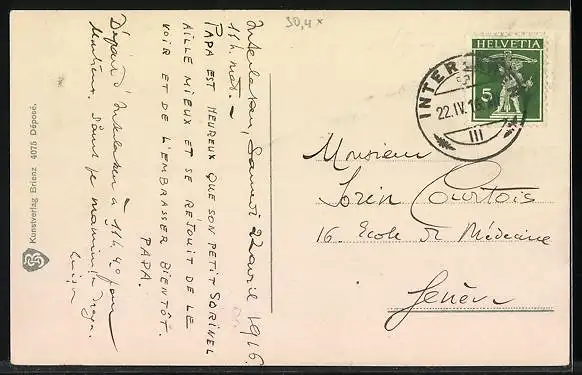 30,4 x
Interlaken, Samedi 22 avril 1916.
11h. mat. –
PAPA EST HEUREUX QUE SON PETIT SORINEL
AILLE MIEUX ET SE RÉJOUIT DE LE
VOIR ET DE L'EMBRASSER BIENTÔT.
PAPA.
Départ d'Interlaken à 11h40 pour
Luisa
Kunstverlag Brienz 4075 Déposé.
HELVETIA
5
INTER
22.IV.16
III
Monsieur
Sorin Courtois
16. Ecole de Médecine
Genève